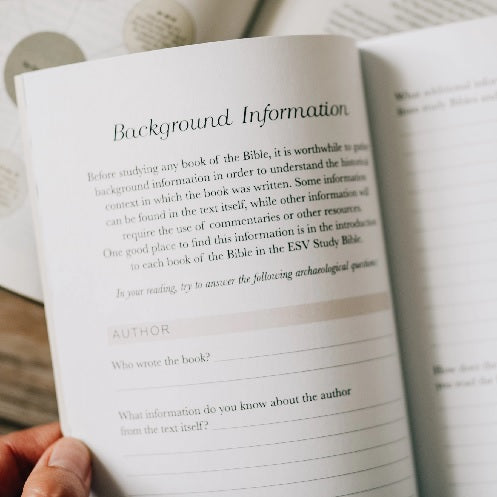 Background Information
Before studying any book of the Bible, it is worthwhile to
background information in order to understand the historical
context in which the book was written. Some information
can be found in the text itself, while other information will
require the use of commentaries or other resources.
One good place to find this information is in the introduction
to each book of the Bible in the ESV Study Bible.
In your reading, try to answer the following archaeological questions
AUTHOR
Who wrote the book?
What information do you know about the author
from the text itself?
What additional